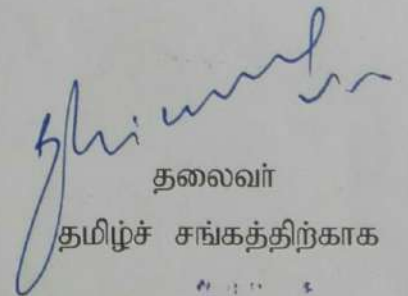 தலைவர்
தமிழ்ச் சங்கத்திற்காக